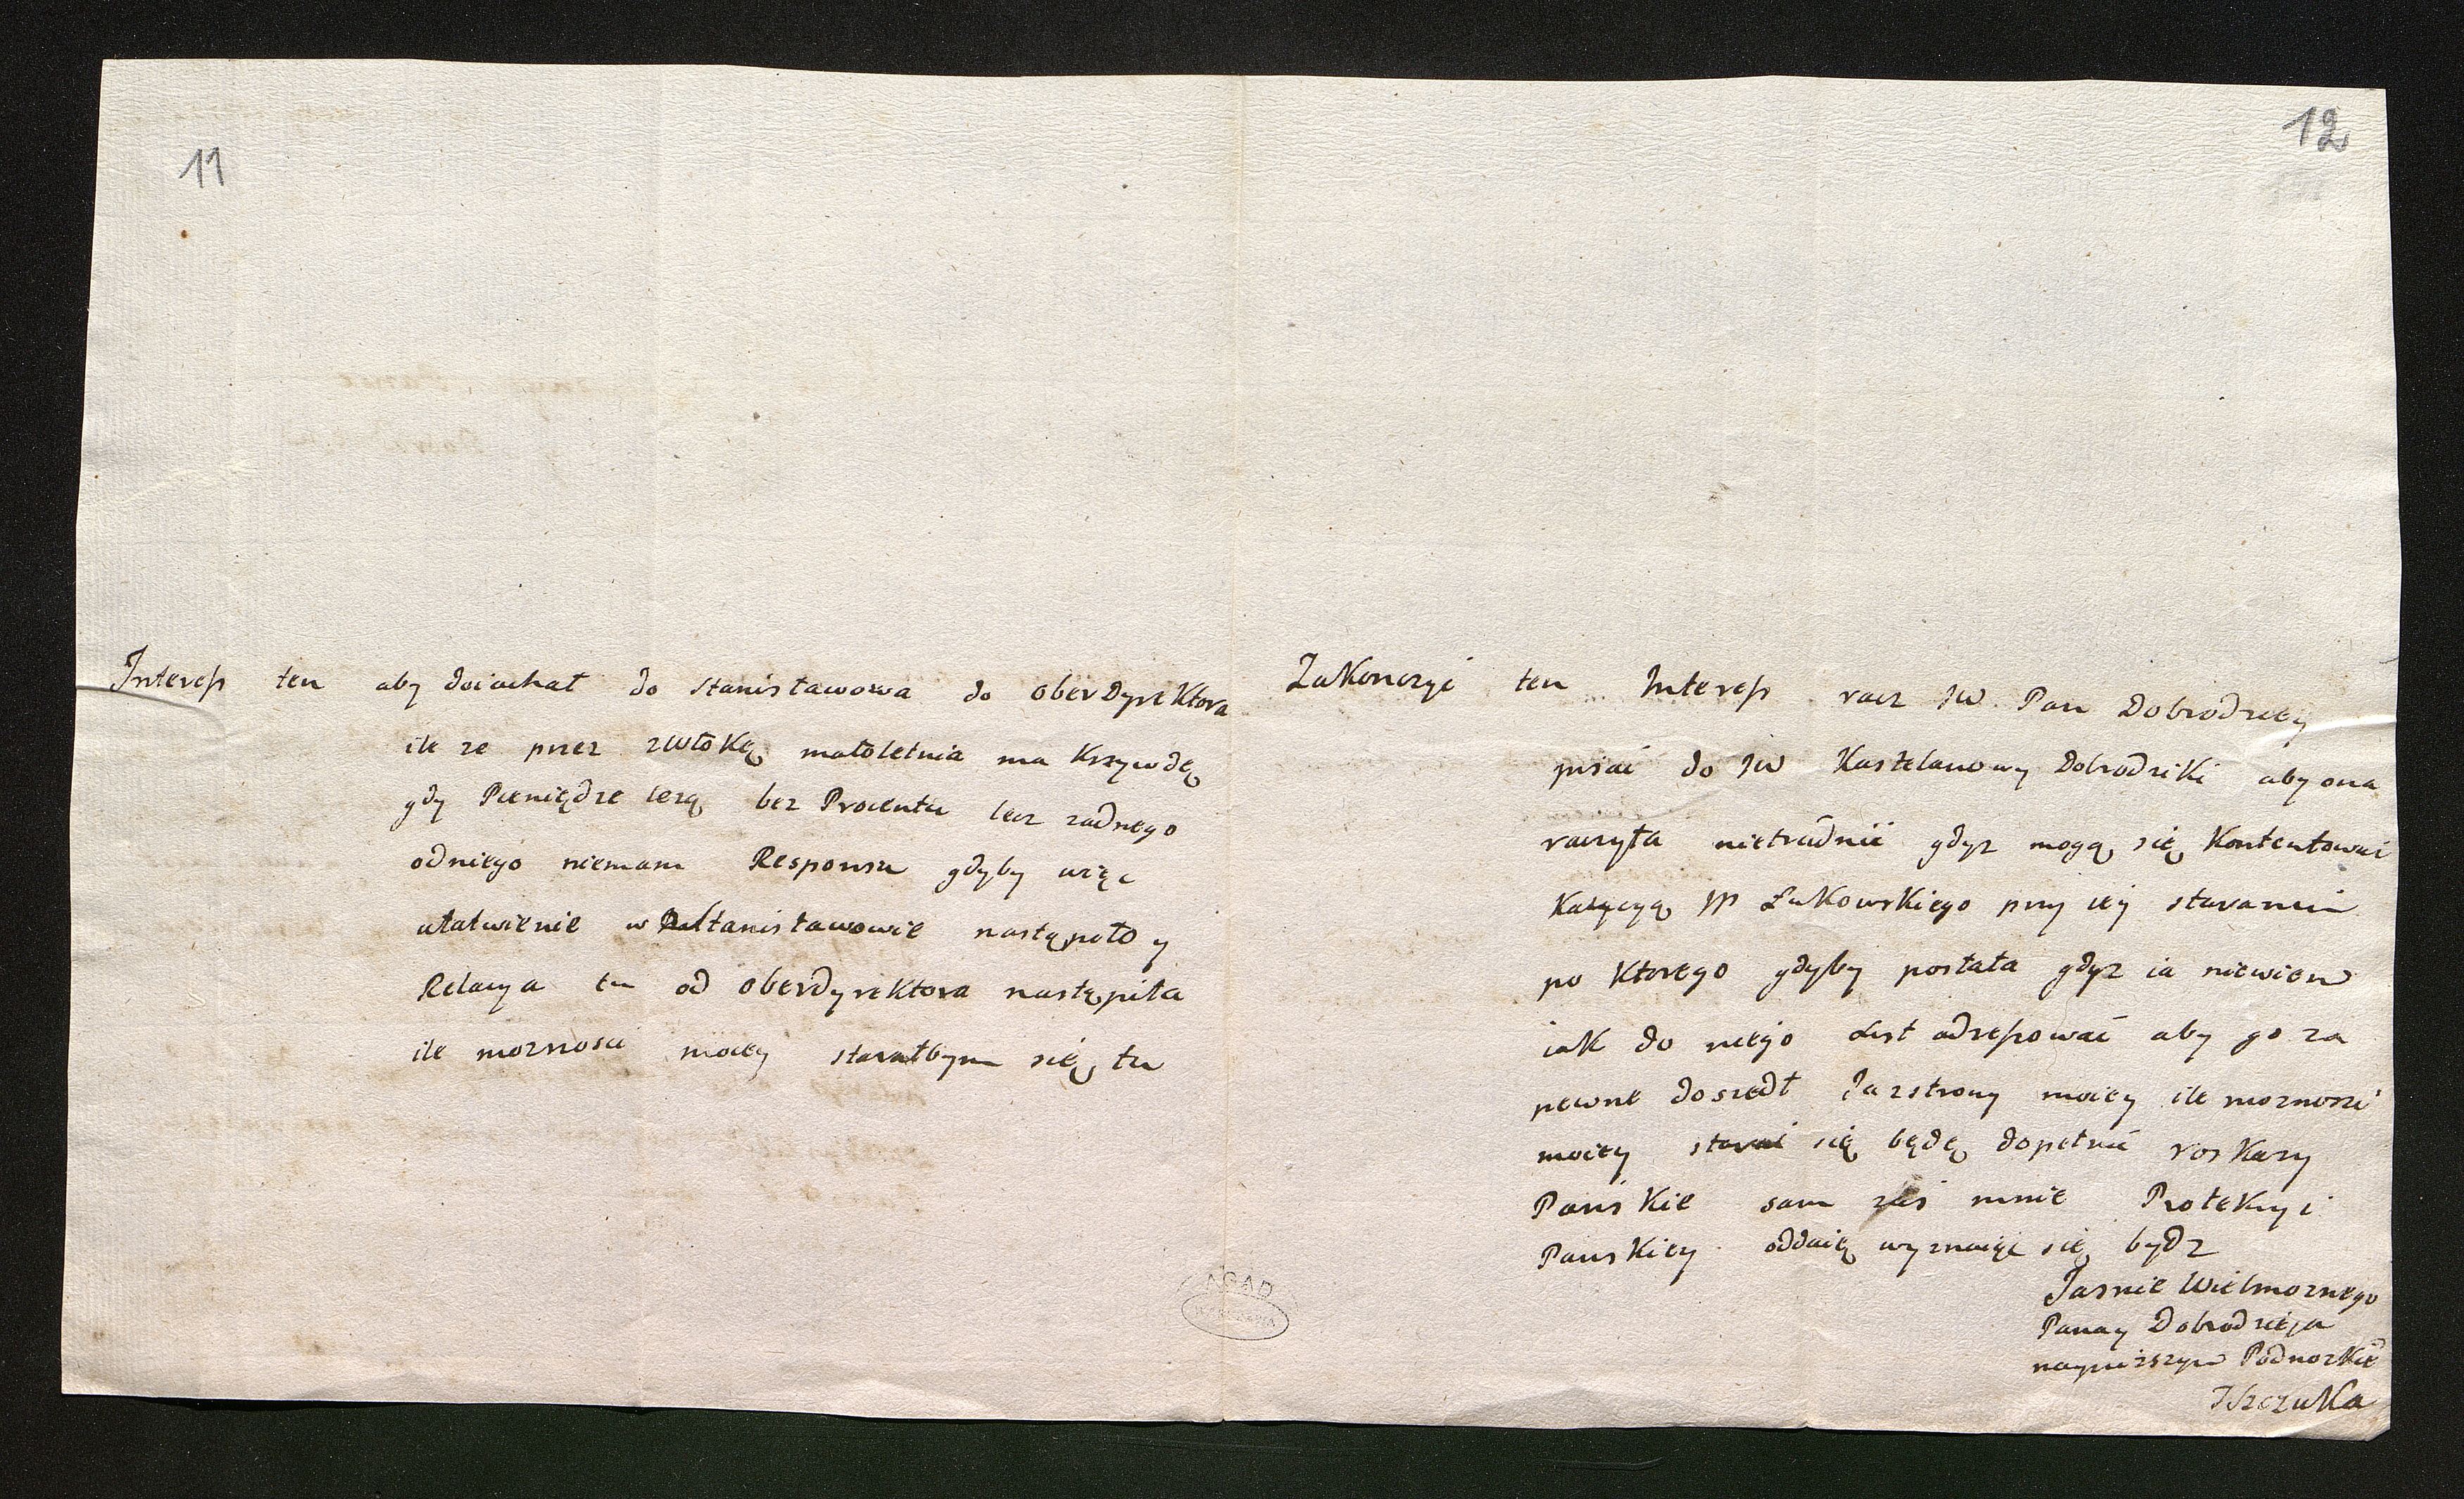 11
Interess ten aby doiachał do Stanisławowa do oberdyrektora
ile ze przez zwłokę małoletnia ma Krzywdę
gdy Pieniędze lezą bez Procentu lecz zadnego
odniego niemam Responsu gdyby więc
ułatwienie w Stanisławowie nastąpiło y
Relacya tu od oberdyrektora nastąpiła
ile moznosci moiey starałbym się tu
12
Zakonczyć ten Interess racz JW Pan Dobrodziey
pisać do JW Kasztelanowy Dobrodziki aby ona
raczyła nietrudnić gdyz mogą się Kontentować
Kaucyą JP Żukowskiego przy iey staraniu
po Ktorego gdyby posłała gdyz ia niewiem
iak do niego List adresować aby go za
pewne doszedł Ja zstrony moiey ile moznosci
moiey starać się będę dopełnić roskazy
Pańskie sam zaś mnie Protekcyi
Pańskiey oddaię wyznaiąc się bydz
Jasnie Wielmoznego
Pana y Dobrodzieja
nayniższym Podnozkie
JSzczuka
AGAD
WARSZAWA